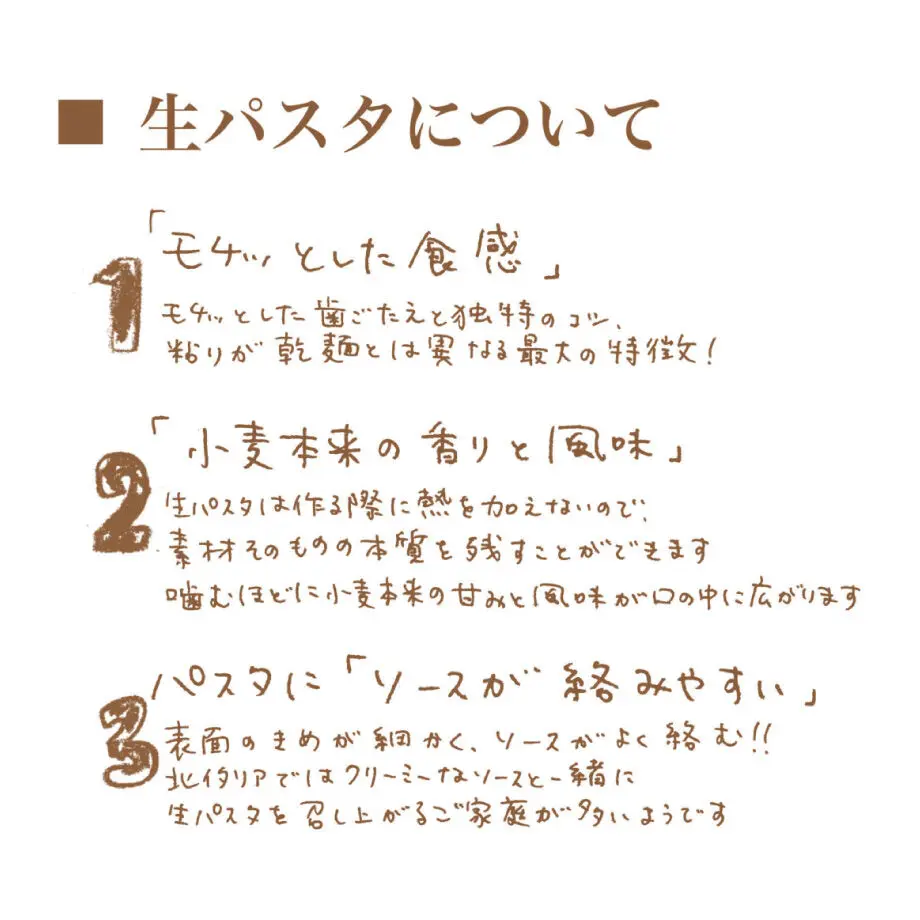 ■ 生パスタについて
1 「モチッとした食感」
モチッとした歯ごたえと独特のコシ、
粘りが乾麺とは異なる最大の特徴!
2 「小麦本来の香りと風味」
生パスタは作る際に熱を加えないので、
素材そのものの本質を残すことができます
噛むほどに小麦本来の甘みと風味が口の中に広がります
3 パスタに「ソースが絡みやすい」
表面のきめが細かく、ソースがよく絡む!!
北イタリアではクリーミーなソースと一緒に
生パスタを召し上がるご家庭が多いようです